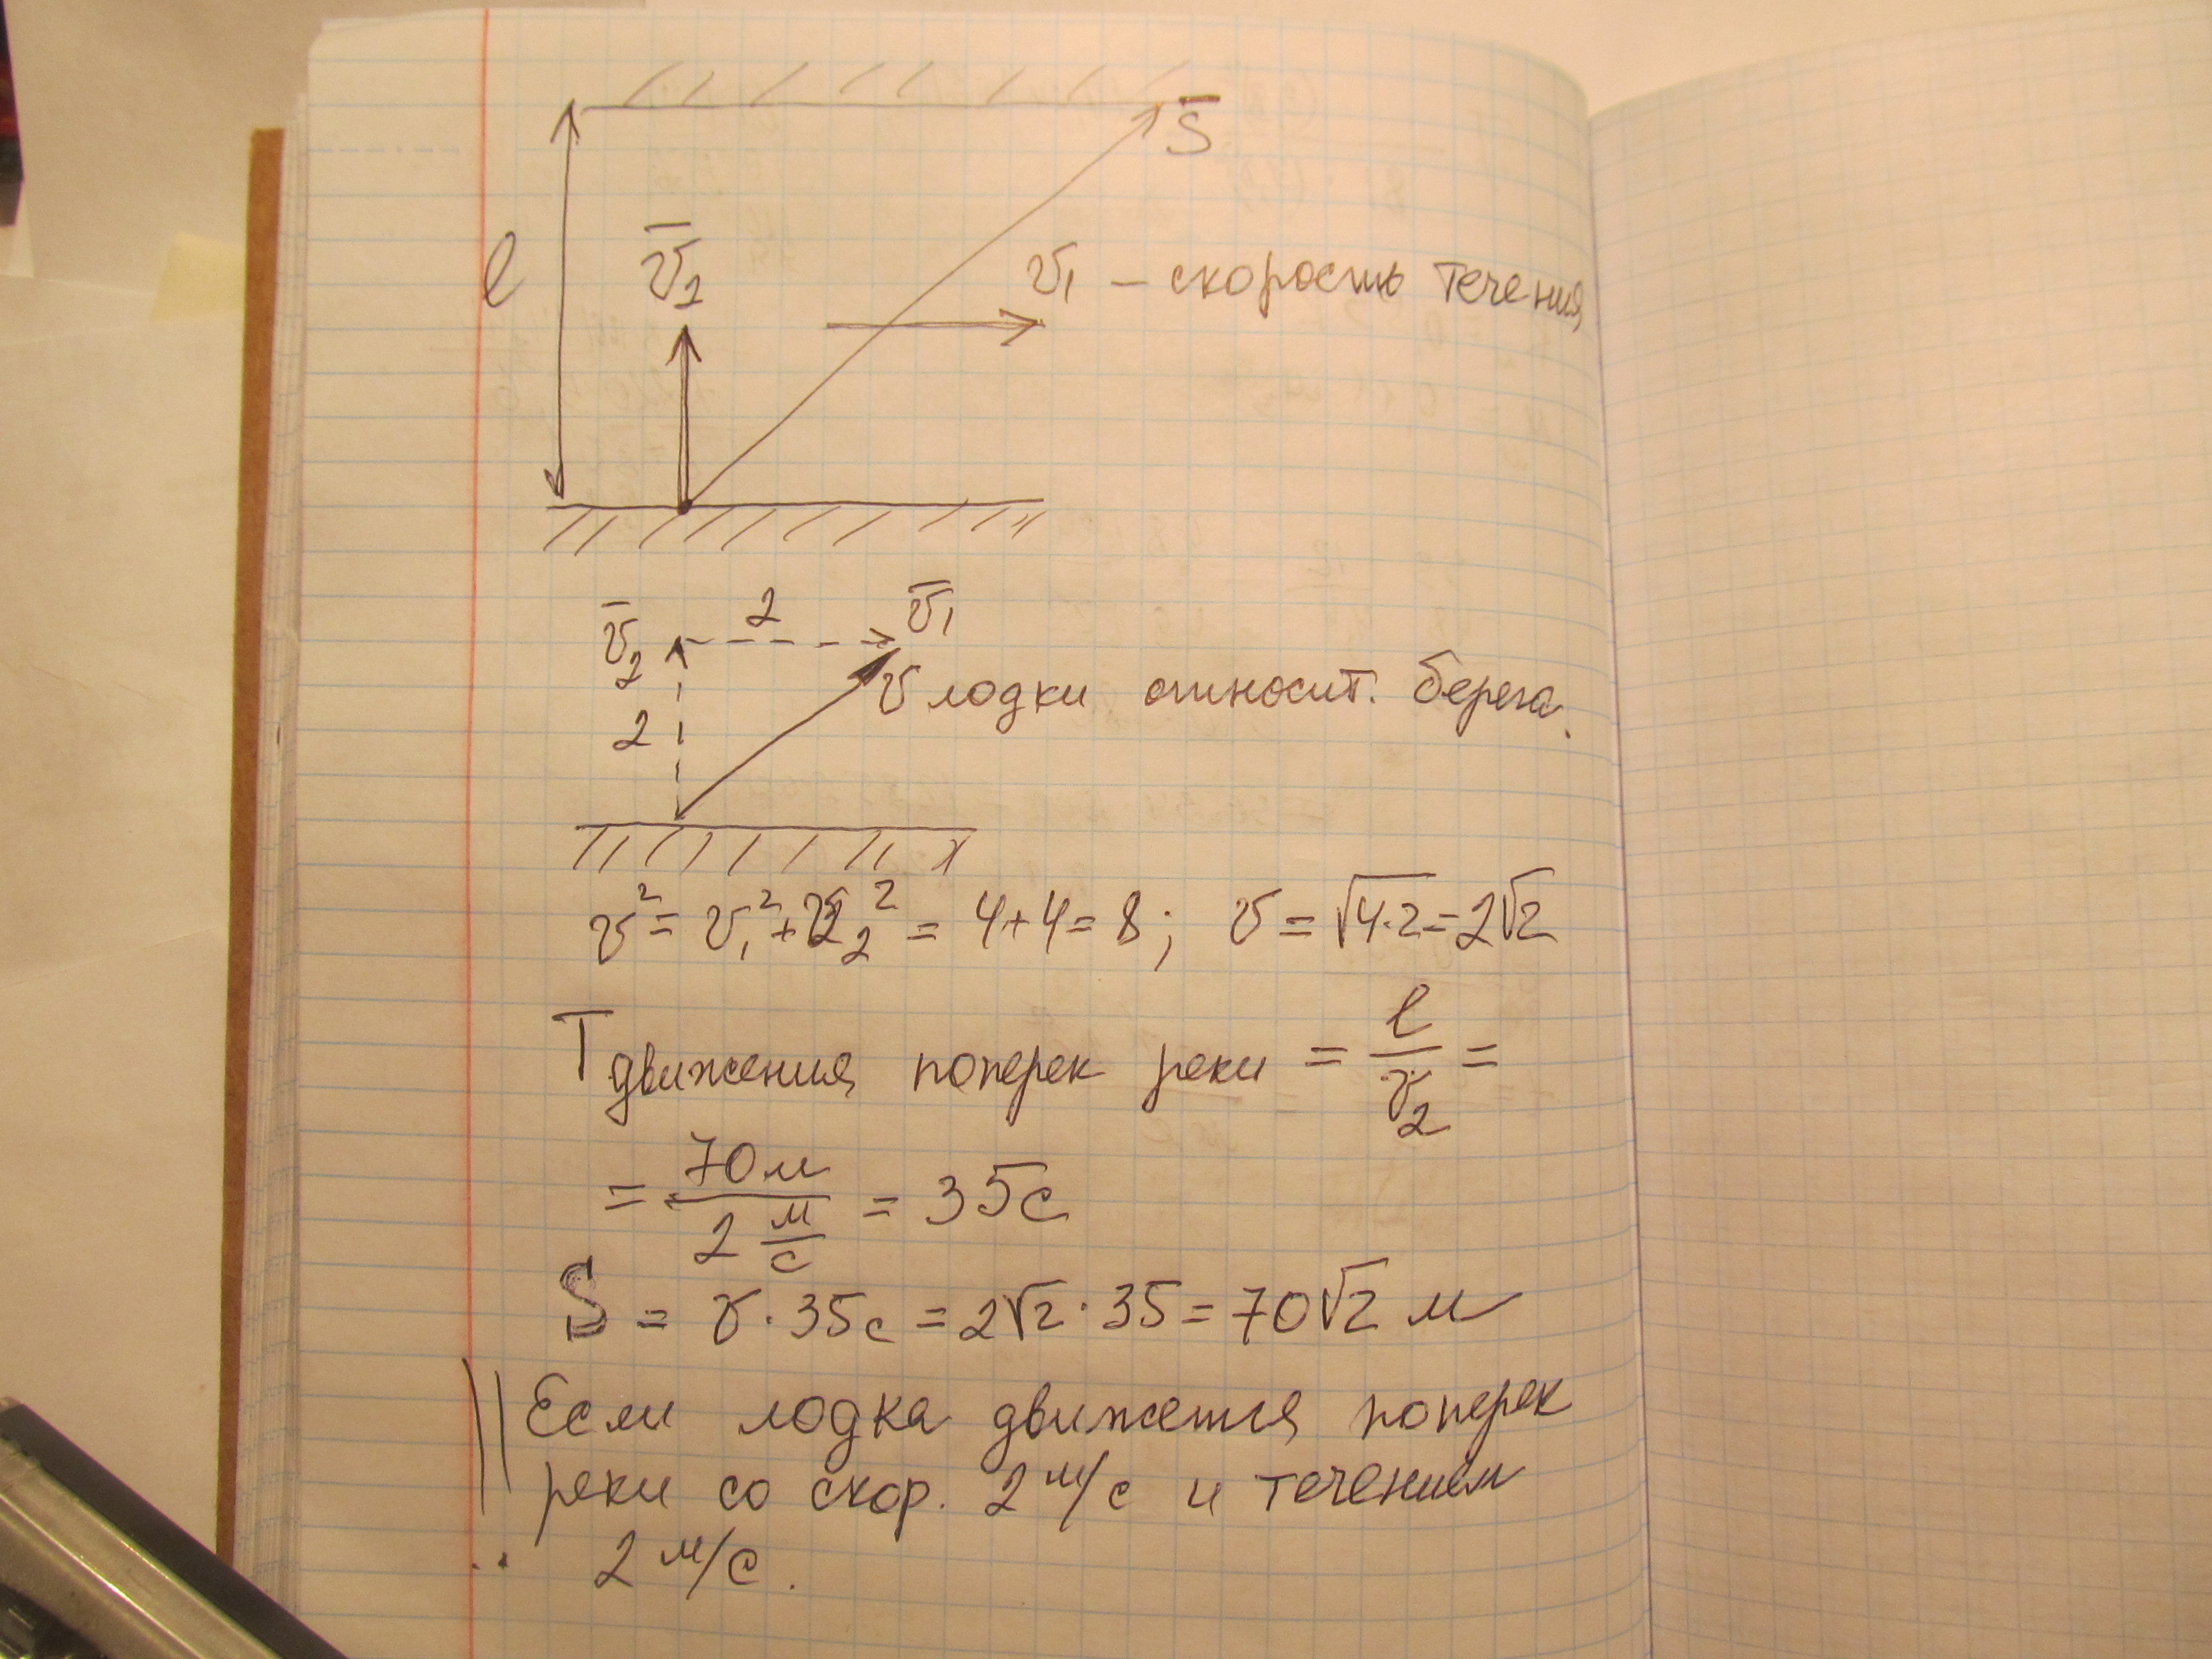 S̅
l
v̅₂
v₁ – скорость течения
v̅₂ 2 v̅₁
2
v лодки относит. берега.
v² = v₁² + v₂² = 4+4 = 8; v = √4·2 = 2√2
T движения поперек реки = l/v₂ =
= 70м / 2 м/с = 35с
S = v · 35с = 2√2 · 35 = 70√2 м
Если лодка движется поперек
реки со скор. 2 м/с и течением
2 м/с.